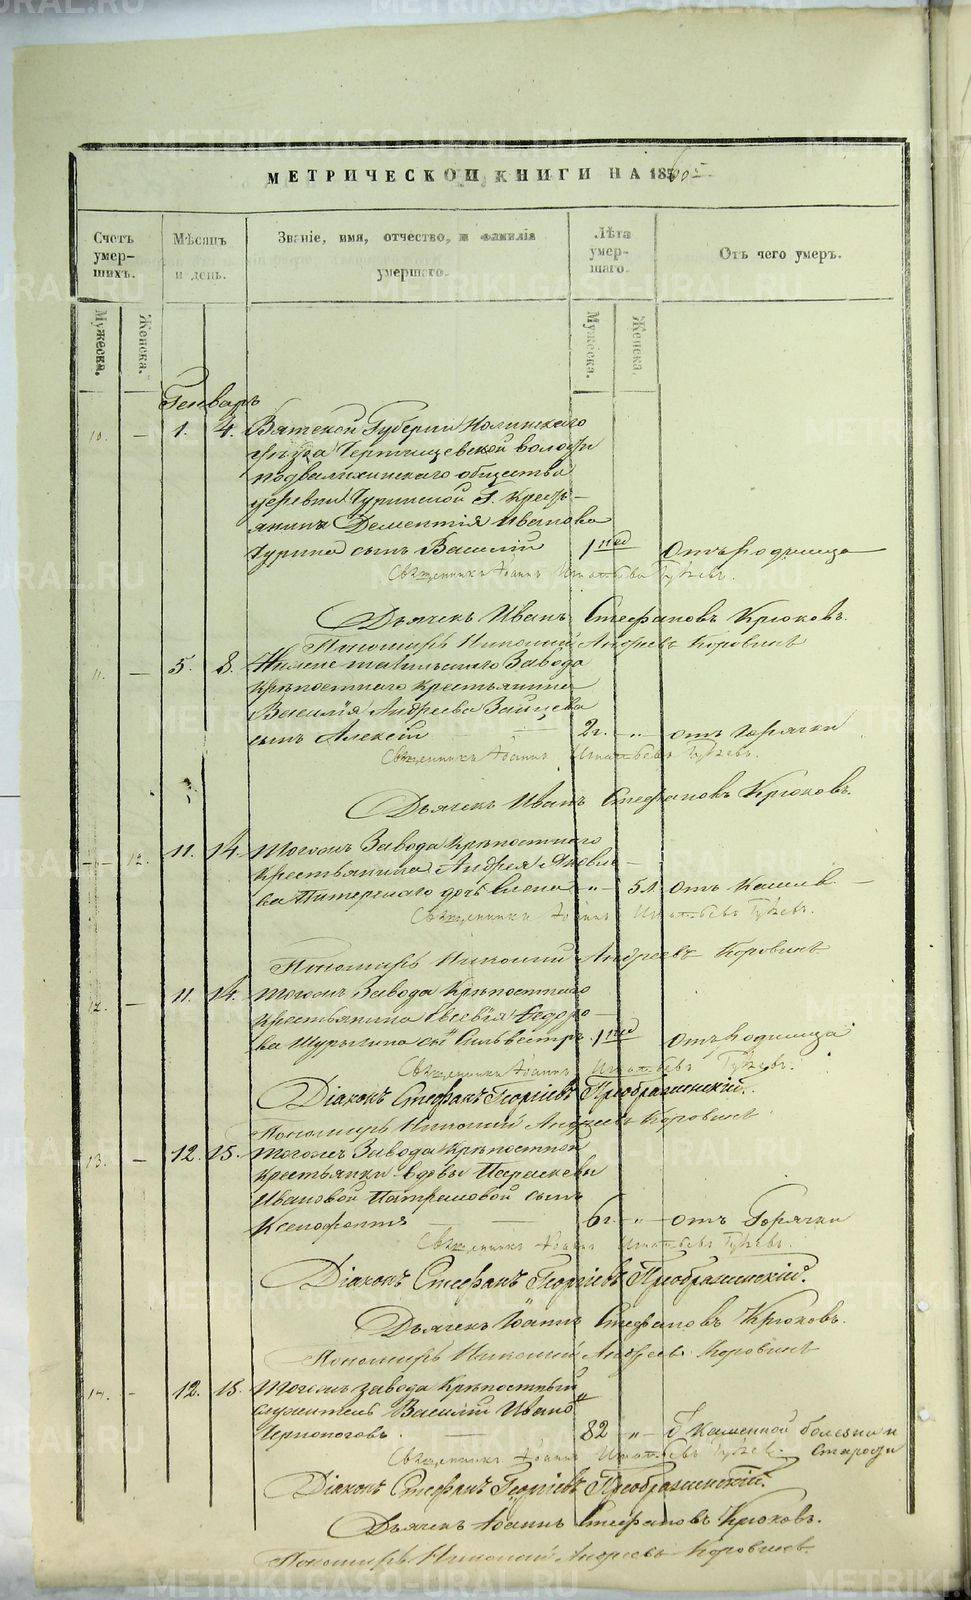 МЕТРИЧЕСКОЙ КНИГИ НА 1860й
Счетъ умер-шихъ.
Мѣсяцъ и день.
Званіе, имя, отчество, и фамилія умершаго.
Лѣта умер-шаго.
Отъ чего умеръ.
Мужеска. Женска. Мужеска. Женска.
Генварь
10. — 1. 4. Вятской Губерніи Нолинскаго
уѣзда Чертищевской волости
общества
деревни Г. Кресть-
янина Дементія Иванова
Чурина сынъ Василій 1 нед Отъ Родимца
Священникъ Іоаннъ Игнатьевъ
Дьячекъ Иванъ Стефановъ Крюковъ.
Пономарь Николай Андреевъ Коровинъ
11. — 5. 8. Нижнетагильскаго Завода
крѣпостнаго крестьянина
Василія Андреева Зайцева
сынъ Алексій 2 г. " — отъ Горячки
Священникъ Іоаннъ Игнатьевъ
Дьячекъ Иванъ Стефановъ Крюковъ.
— 12. 11. 14. Тогожъ Завода Крѣпостнаго
крестьянина Андрея Яковле-
ва Питерскаго дочь Елена — " — 5 л. отъ Кашля. —
Священникъ Іоаннъ Игнатьевъ
Пономарь Николай Андреевъ Коровинъ
12. — 11. 14. Тогожъ Завода Крѣпостнаго
крестьянина Евсевія Ѳедоро-
ва Шурыгина сы Сильвестръ 1 нед Отъ Родимца
Священникъ Іоаннъ Игнатьевъ
Діаконъ Стефанъ Георгіевъ Преображенскій.
Пономарь Николай Андреевъ Коровинъ
13. — 12. 15. Тогожъ Завода Крѣпостной
крестьянки вдовы Параскевы
Ивановой сынъ
Ксенофонтъ — — 6 г. — " — отъ Горячки
Священникъ Іоаннъ Игнатьевъ
Діаконъ Стефанъ Георгіевъ Преображенскій.
Дьячекъ Іоаннъ Стефановъ Крюковъ.
Пономарь Николай Андреевъ Коровинъ
14. — 12. 15. Тогожъ завода Крѣпостный
служитель Василій Ивановъ
Черноноговъ. — 82 — " — Каменной болезни и
Старости
Священникъ Іоаннъ Игнатьевъ
Діаконъ Стефанъ Георгіевъ Преображенскій.
Дьячекъ Іоаннъ Стефановъ Крюковъ.
Пономарь Николай Андреевъ Коровинъ
METRIKI.GASO-URAL.RU